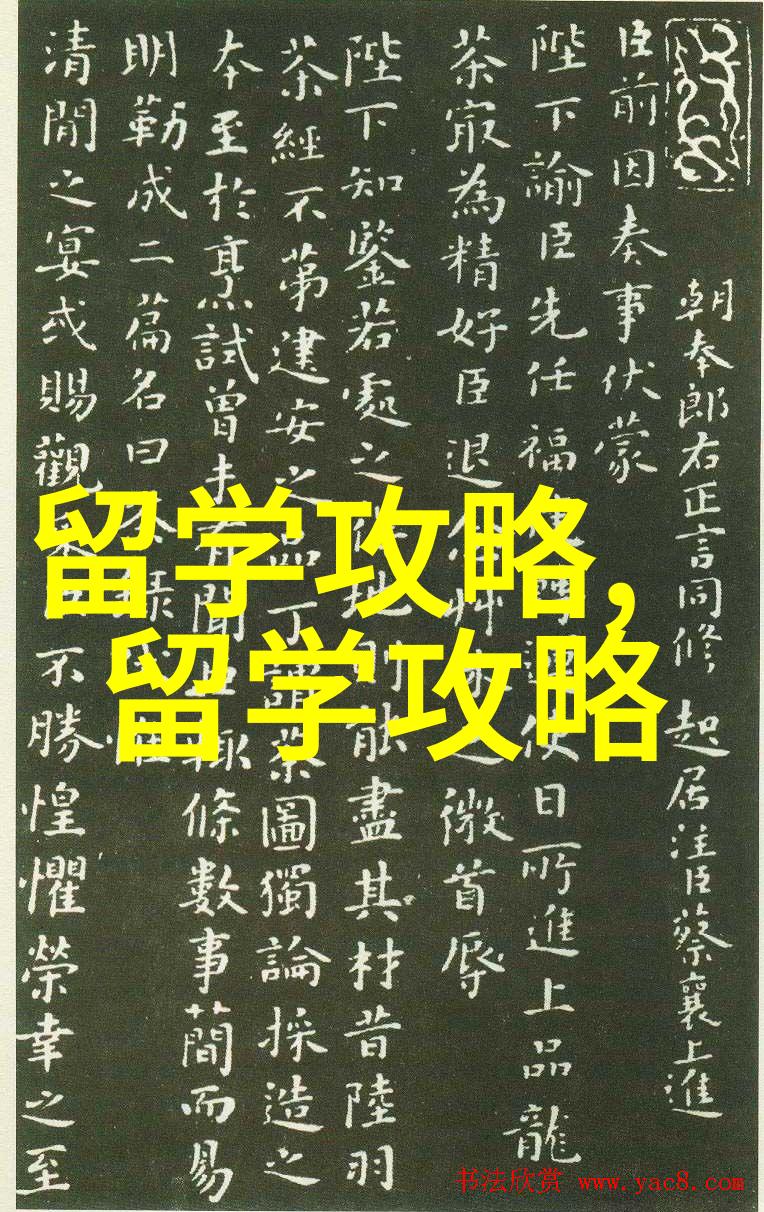 朝奉郎右正言同修起居注臣蔡襄上進
臣前因奏事伏蒙
陛下諭臣先任福使日所進上品龍
茶㝡為精好臣退之微首辱
陛下知鑒若處之地則能盡其材昔陸羽
茶經不第建安之品丁謂茶圖獨論採造之
本至於烹試曾未有聞臣輒條數事簡而易
明勒成二篇名曰茶錄
清閒之宴或賜觀采臣不勝惶懼榮幸之至
留学攻略,
留学攻略
书法欣赏 www.yac8.com